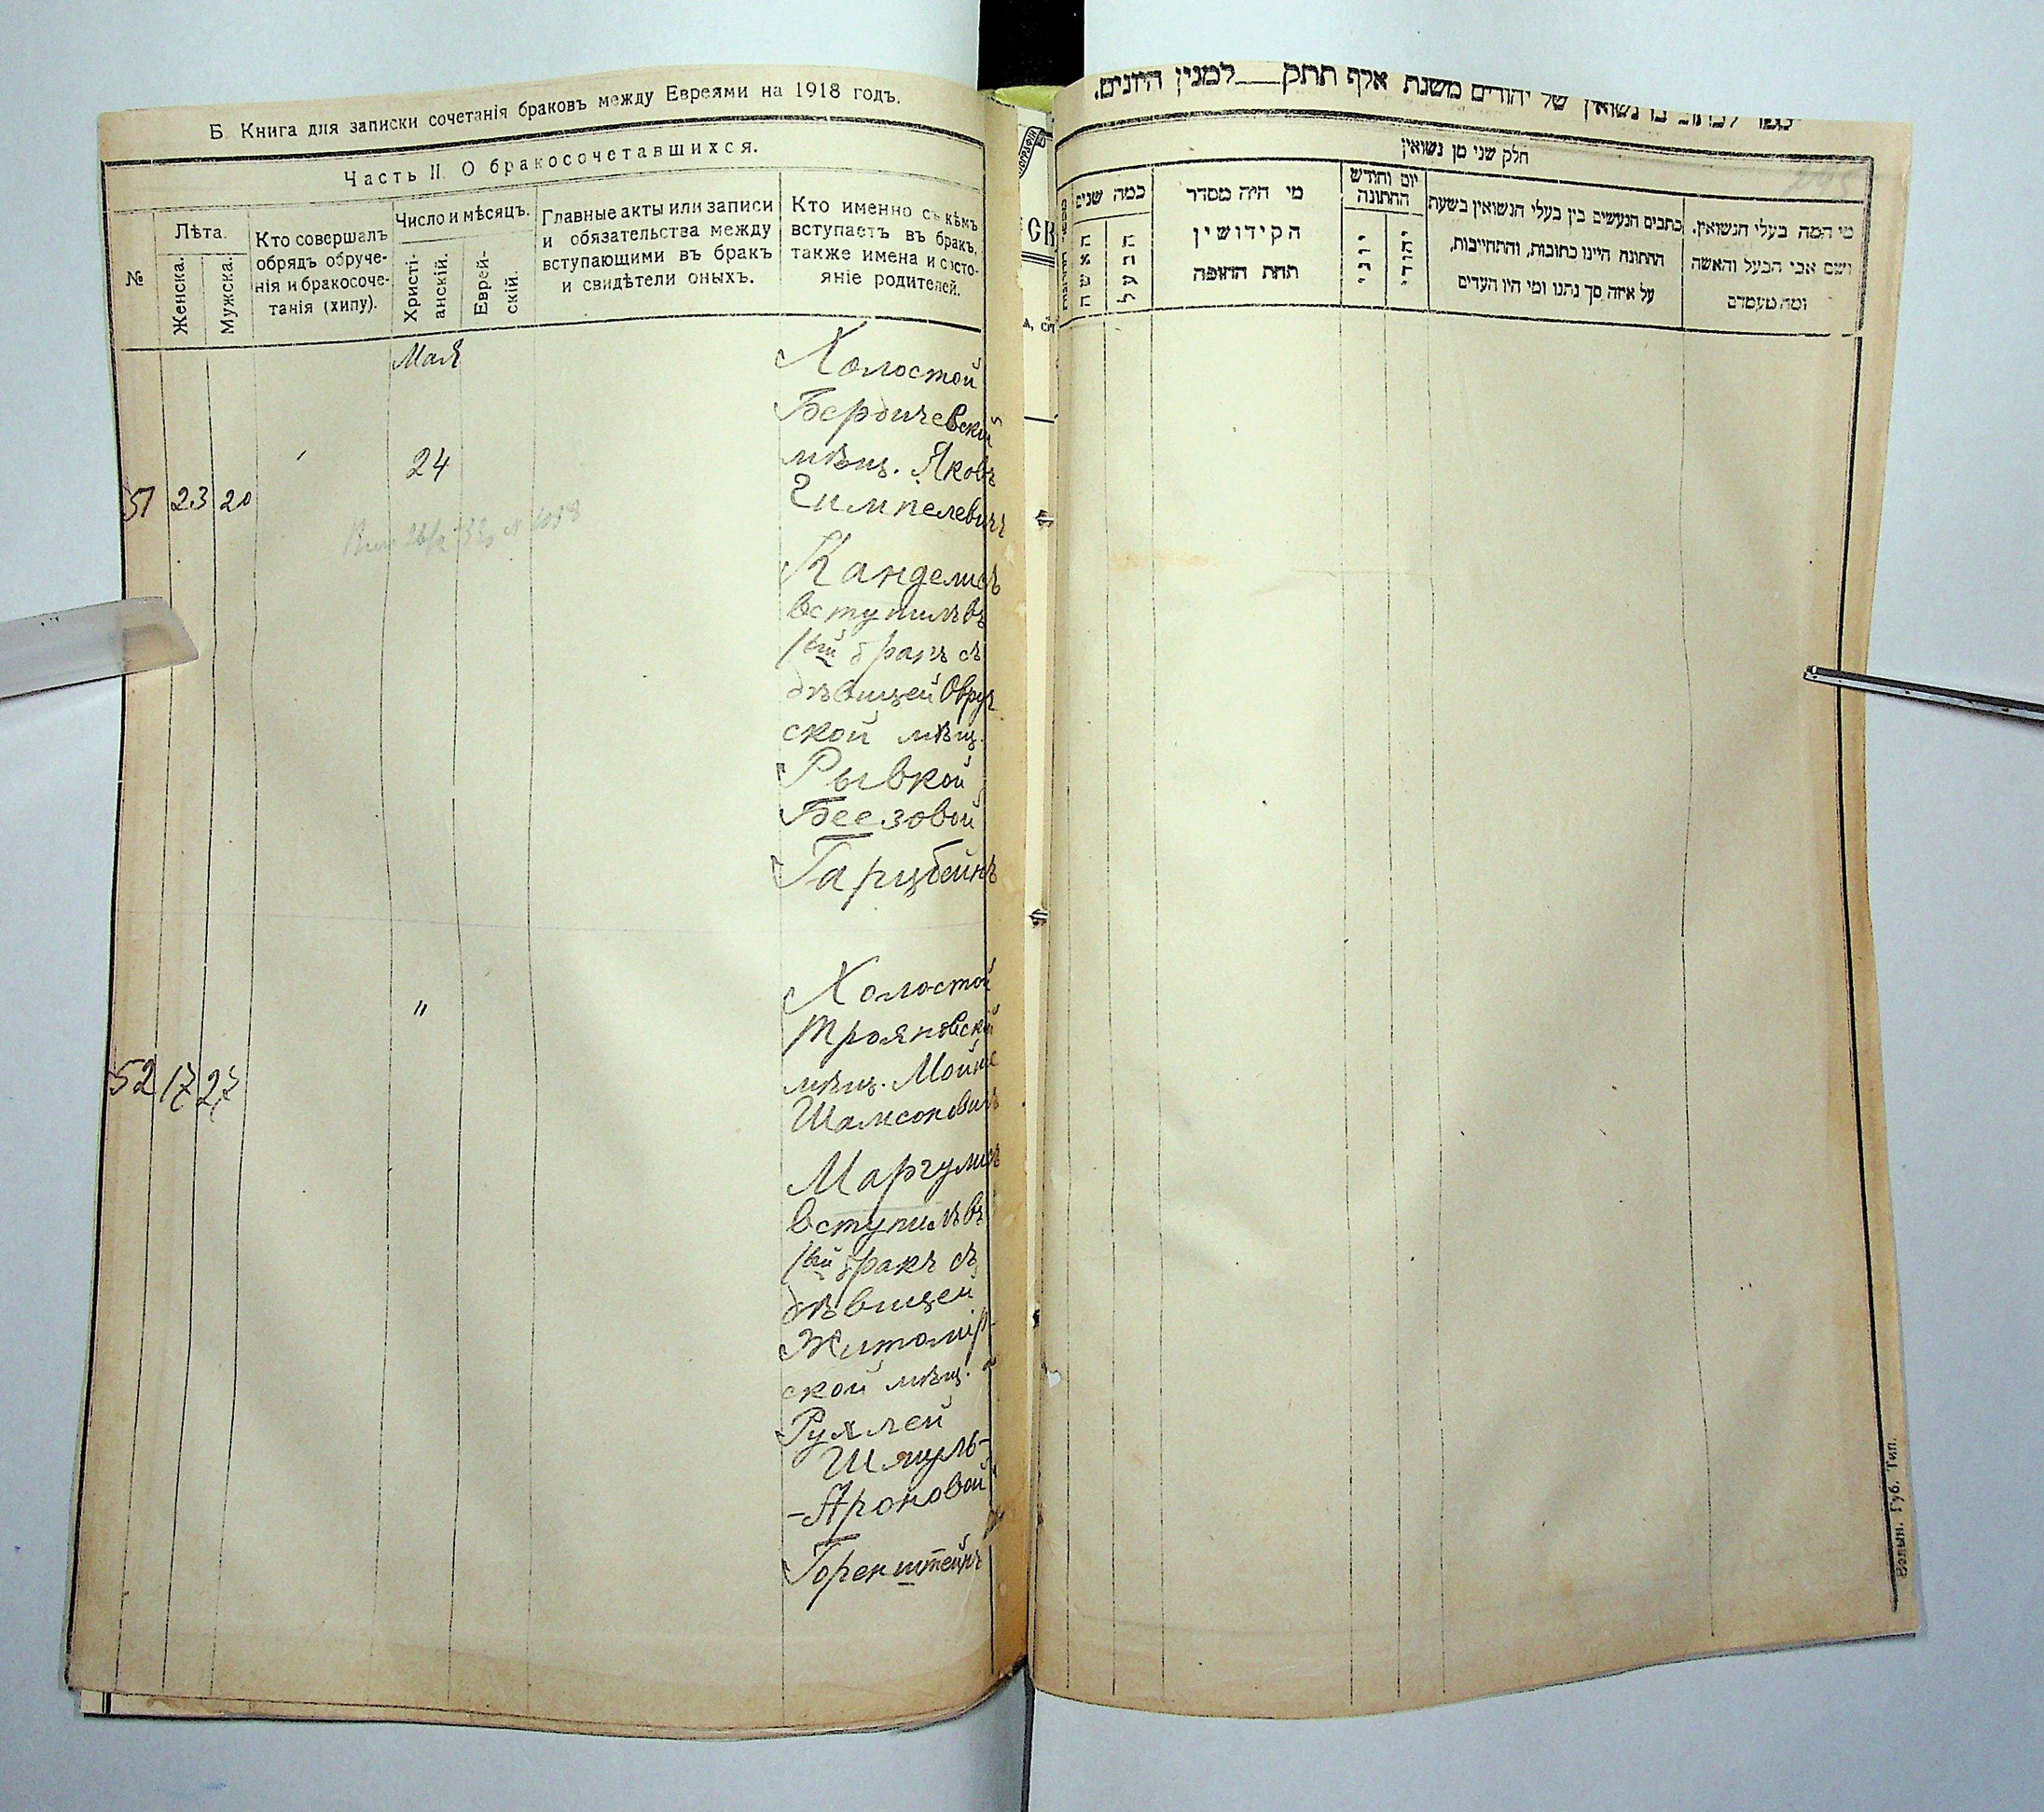 Б. Книга для записки сочетанія браковъ между Евреями на 1918 годъ.
Часть II. О бракосочетавшихся.
№
Лѣта.
Женска.
Мужска.
Кто совершалъ
обрядъ обруче-
нія и бракосоче-
танія (хипу).
Число и мѣсяцъ.
Христі-
анскій.
Еврей-
скій.
Главные акты или записи
и обязательства между
вступающими въ бракъ
и свидѣтели оныхъ.
Кто именно съ кѣмъ
вступаетъ въ бракъ,
также имена и состо-
яніе родителей.
Мая
51 23 20
24
Холостой
Бердичевскій
мѣщ. Яковъ
Гимпелевичъ
Канделисъ
вступилъ въ
1ый бракъ съ
дѣвицей Овруч
ской мѣщ.
Рывкой
Беезовой
Гарцбейнъ
52 17 27
"
Холостой
Трояновскій
мѣщ. Мойше
Шамсоновичъ
Маргулисъ
вступилъ въ
1ый бракъ съ
дѣвицей
Житомір-
ской мѣщ.
Рухлей
Шмуль-
-Ароновой
Горенштейнъ
של יהודים משנת אלף תתק למנין היונים.
חלק שני מן נשואין
כמה שנים
האשה
הבעל
מי היה מסדר
הקידושין
תחת החופה
יום וחודש
החתונה
יוני
יהודי
כתבים הנעשים בין בעלי הנשואין בשעת
החתונה היינו כתובות, והתחייבות,
על איזה סך נתנו ומי היו העדים
מי המה בעלי הנשואין,
ושם אבי הבעל והאשה
ומה מעמדם
Волын. Губ. Тип.